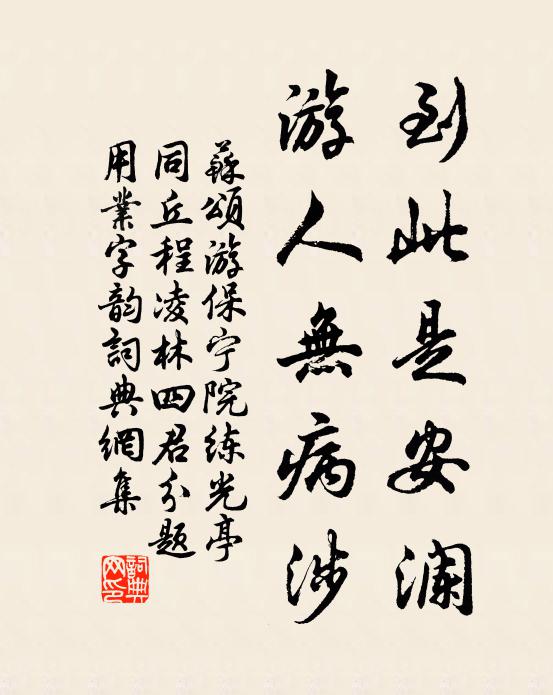 到此是安澜
游人無病涉
蘇頌游保宁院练光亭
同丘程凌林四君分题
用業字韵詞典網集
詞典网印